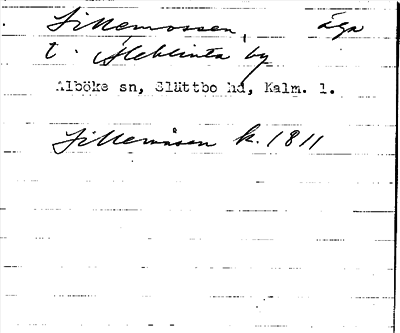 Sillemossen, äga
t. Ålebänta by
Alböke sn, Slättbo hd, Kalm. l.
Sillemåsen k. 1811